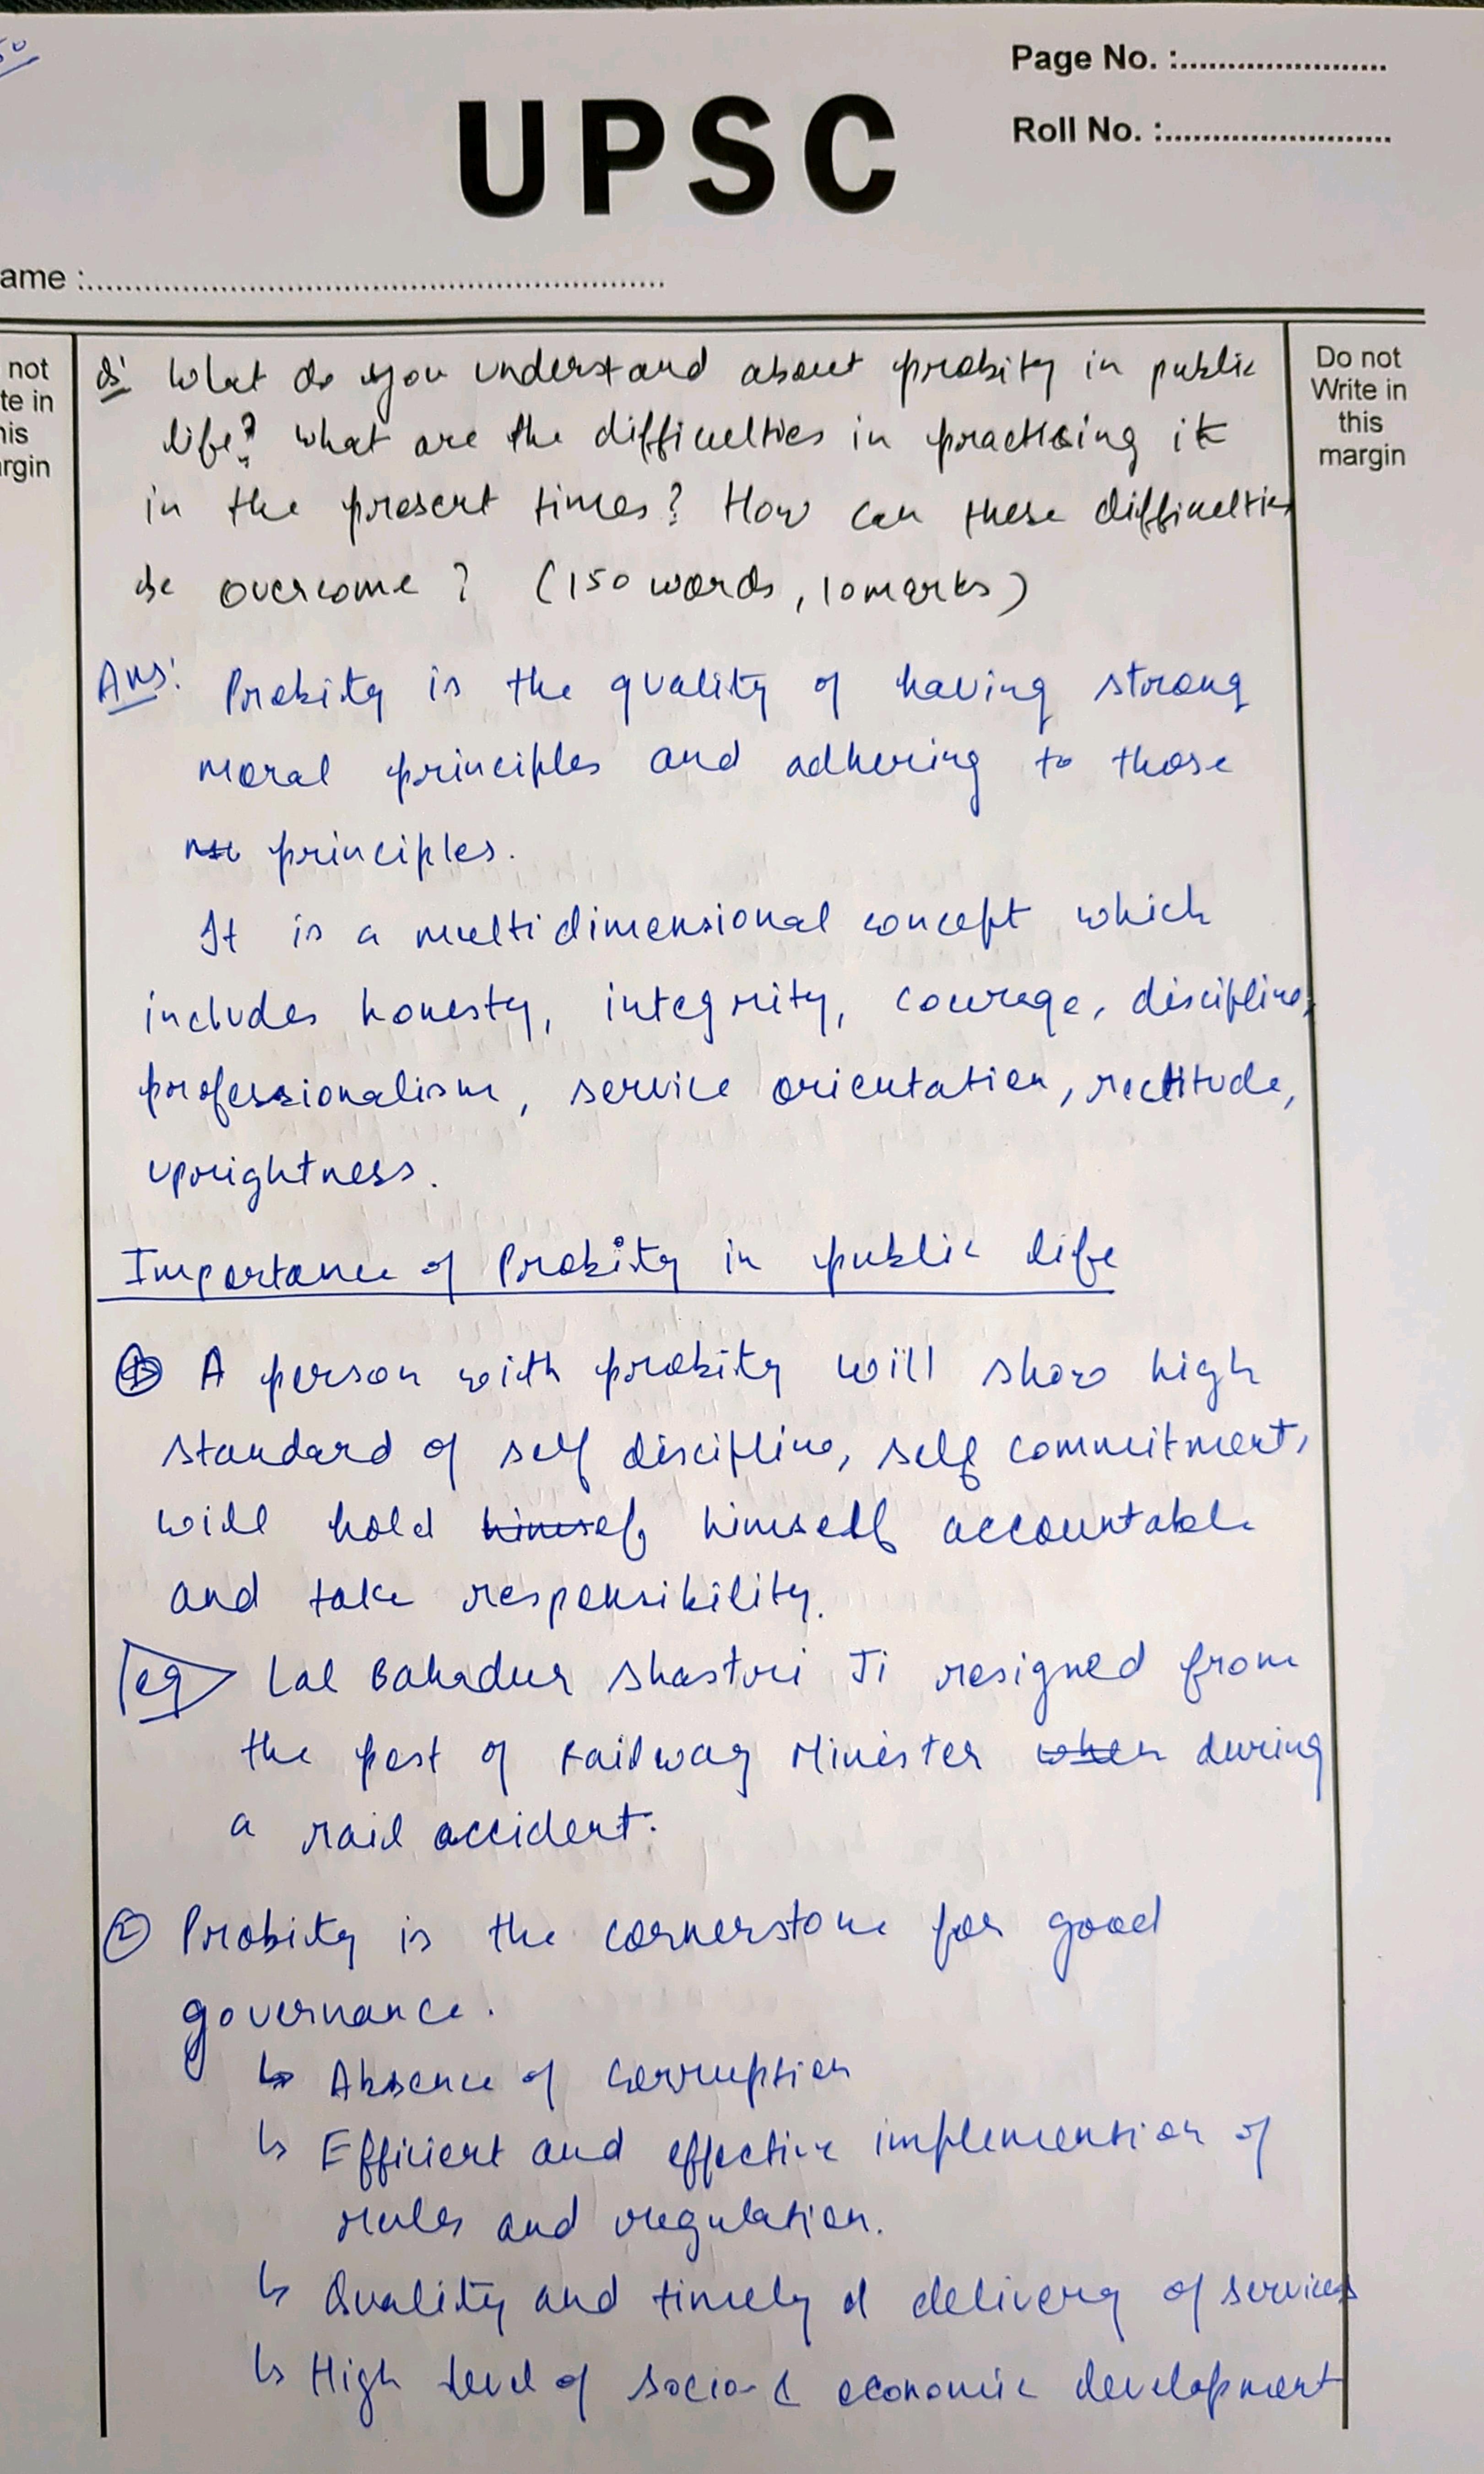 Page No. :......................
Roll No. :........................
UPSC
ame :..............................................................
not
te in
his
rgin
Do not
Write in
this
margin
Q: What do you understand about probity in public
life? What are the difficulties in practicing it
in the present times? How can these difficulties
be overcome? (150 words, 10 marks)
Ans: Probity is the quality of having strong
moral principles and adhering to those
principles.
It is a multidimensional concept which
includes honesty, integrity, courage, discipline,
professionalism, service orientation, rectitude,
uprightness.
Importance of Probity in public life
① A person with probity will show high
standard of self discipline, self commitment,
will hold himself himself accountable
and take responsibility.
eg Lal Bahadur Shastri Ji resigned from
the post of Railway Minister when during
a rail accident.
② Probity is the cornerstone for good
governance.
↳ Absence of corruption
↳ Efficient and effective implemention of
rules and regulation.
↳ Quality and timely d delivery of services
↳ High level of socio- & economic development